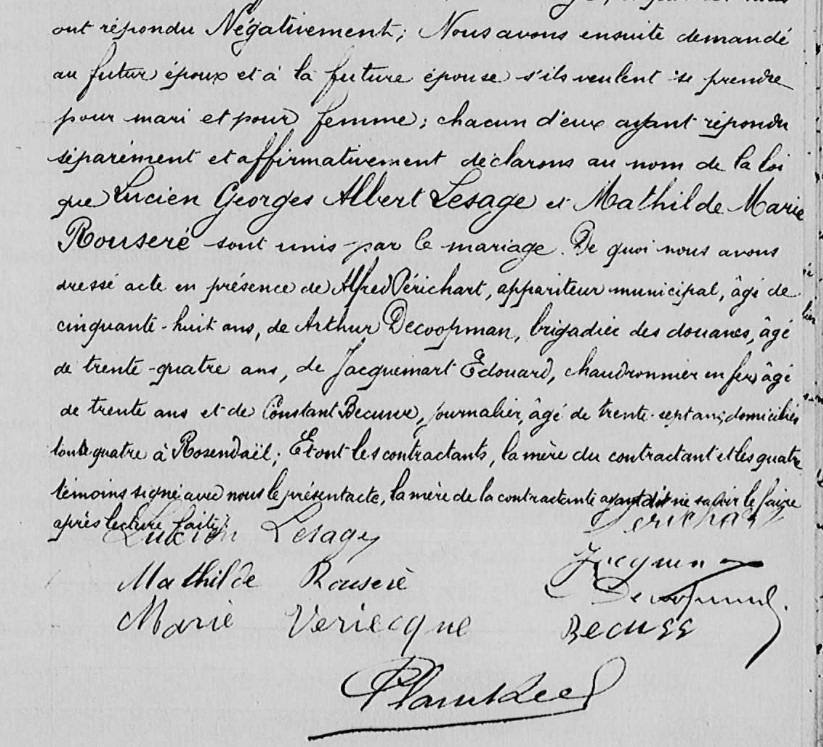 ont répondu Négativement; Nous avons ensuite demandé
au futur époux et à la future épouse s'ils veulent se prendre
pour mari et pour femme; chacun d'eux ayant répondu
séparément et affirmativement déclarons au nom de la loi
que Lucien Georges Albert Lesage et Mathilde Marie
Rouseré sont unis par le mariage. De quoi nous avons
dressé acte en présence de Alfred Périchart, appariteur municipal, âgé de
cinquante-huit ans, de Arthur Decoopman, brigadier des douanes, âgé
de trente-quatre ans, de Jacquemart Edouard, chaudronnier en fer, âgé
de trente ans et de Constant Becuwe, journalier, âgé de trente-sept ans, domiciliés
tous quatre à Rosendaël; Et ont les contractants, la mère du contractant et les quatre
témoins signé avec nous le présent acte, la mère de la contractante ayant dit ne savoir le faire
après lecture faite.
Lucien Lesage Perichart
Mathilde Rouseré
Marie Veriecque Becuwe